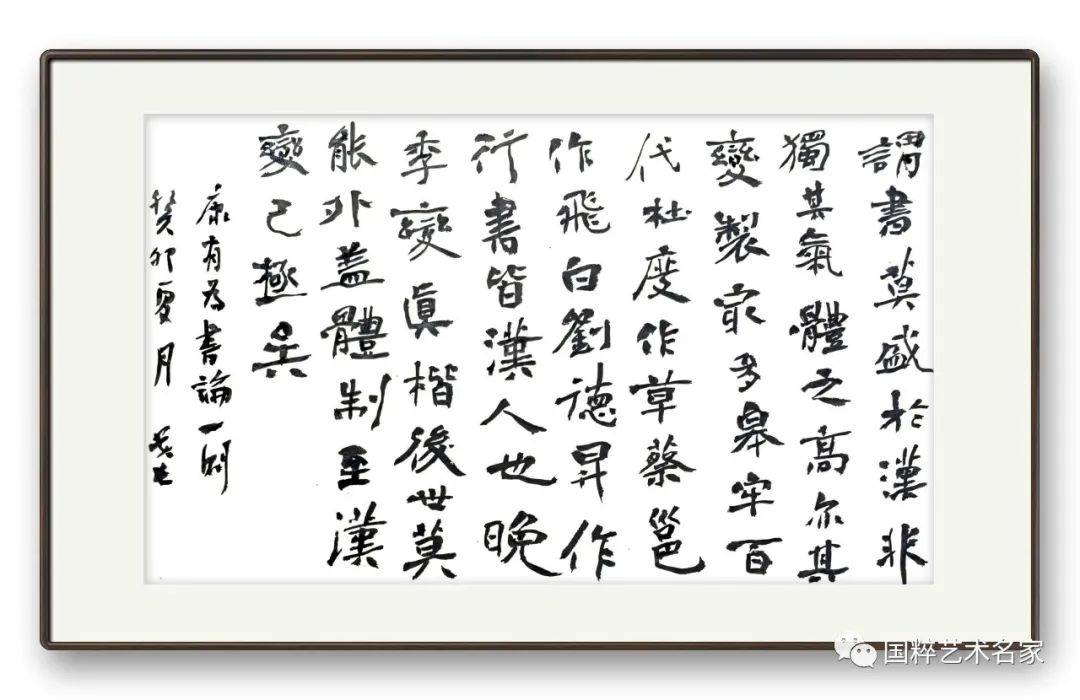 謂書莫盛於漢非
獨其氣體之高亦其
變製最多皋牢百
代杜度作草蔡邕
作飛白劉德昇作
行書皆漢人也晚
季變眞楷後世莫
能外蓋體制至漢
變已極矣
康有為書論一則
癸卯夏月
国粹艺术名家